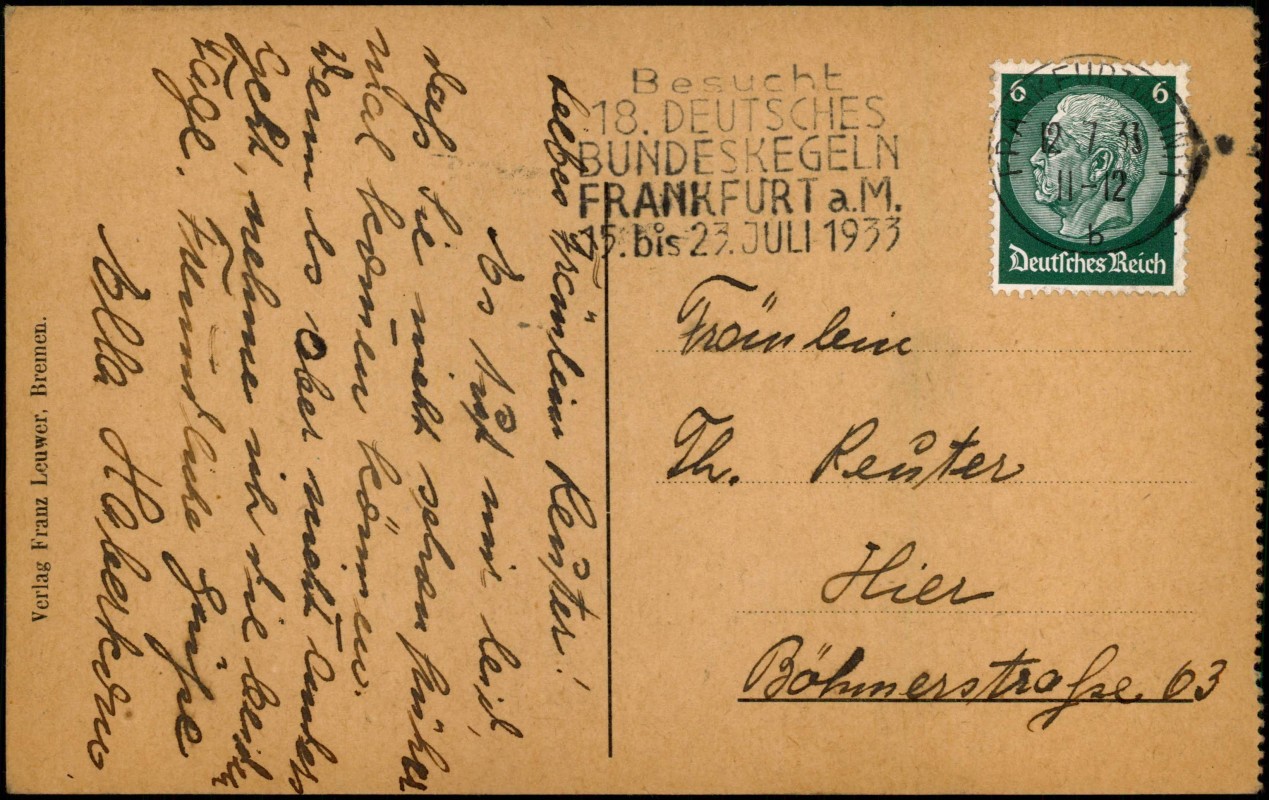 Besucht
18. DEUTSCHES
BUNDESKEGELN
FRANKFURT a.M.
15. bis 23. JULI 1933
6 6
FRANKFURT (MAIN) 1
12.7.33
11-12
b
Deutsches Reich
Fräulein
Th. Reuter
Hier
Böhmerstraße 63
Liebes Fräulein Reuter!
Es tut mir leid,
daß Sie nicht schon früher
mal kommen können.
Wenn es aber nicht anders
geht, nehme ich die beiden
Tage. Freundliche Grüße
Ella
Verlag Franz Leuwer, Bremen.